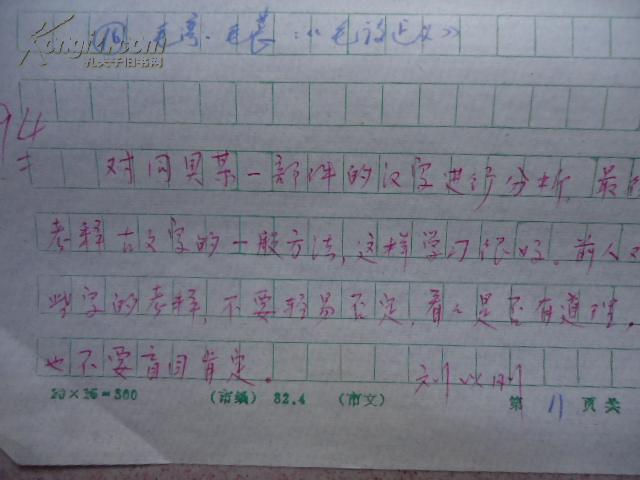 Kongfz.com
孔夫子旧书网
⑯ 毛亨·毛苌：《毛诗正义》
94
对同具某一部件的汉字进行分析，最
考释古文字的一般方法，这样学习很好。前人
些字的考释，不要轻易否定，看人是否有道理，
也不要盲目肯定。 刘以刚
20×15=300 （市编） 82.4 （市文） 第 11 页共